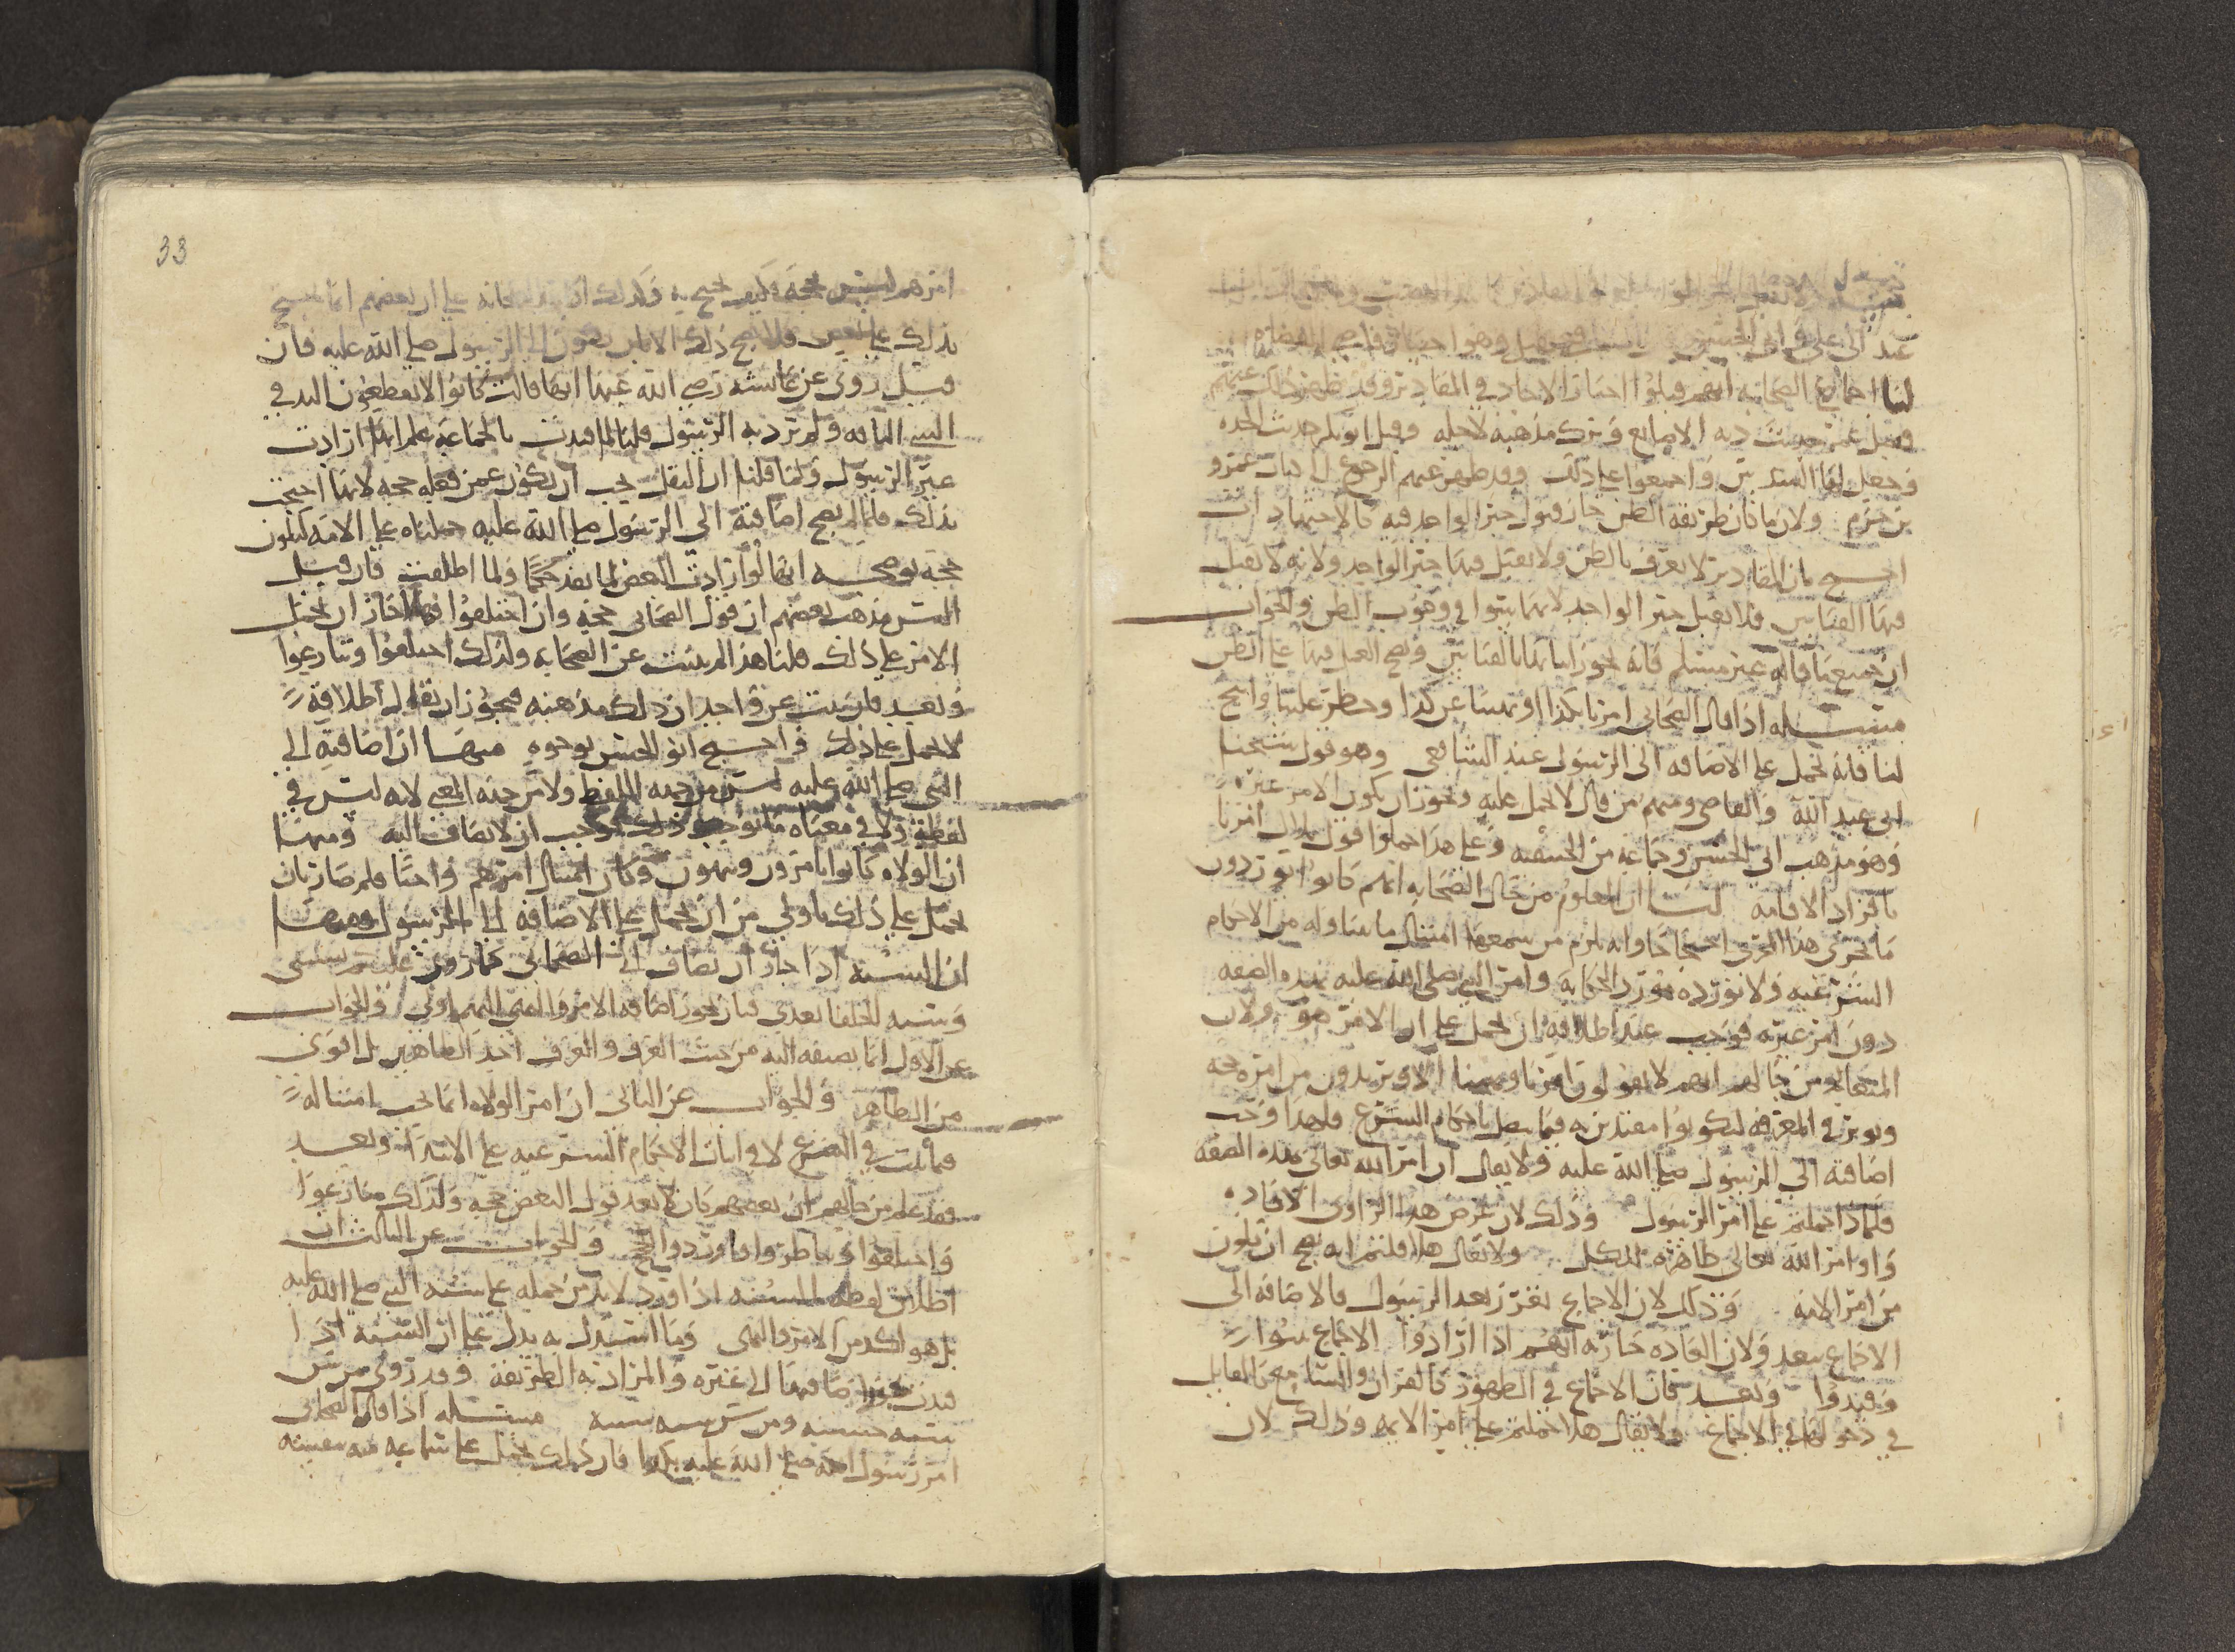 لنا اجماع الصحابة انهم قبلوا اخبار الاحاد في المقادير وقد ظهر ذلك عنهم
فقبل عمر حديث دية الاصابع وترك مذهبه لاجله وقبل ابو بكر حديث الجده
وجعل لها السدس واجمعوا على ذلك وقد ظهر عنهم الرجوع الى كتاب عمرو
بن حزم ولان ما كان طريقه الظن جاز قبول خبر الواحد فيه كالاجتهاد ات
احتج بان المقادير لا تعرف بالظن ولا يقبل فيها خبر الواحد ولانه لا يقبل
فيها القياس فلا يقبل خبر الواحد لانهما سوا في وجوب الظن والجواب
ان جميع ما قاله غير مسلم فانه يجوز اثباتها بالقياس ويصح العمل فيها على الظن
مسله اذا قال الصحابي امرنا بكذا او نهينا عن كذا وحظر علينا وابيح
لنا فانه يحمل على الاضافه الى الرسول عند الشافعي وهو قول شيخنا
ابي عبد الله والقاضي ومنهم من قال لا يحمل عليه ويجوز ان يكون الامر غيره
وهو مذهب ابي الحسن وجماعه من الحنفيه وعلى هذا حملوا قول بلال امرنا
بافراد الاقامه لنا ان المعلوم من حال الصحابه انهم كانوا يوردون
ما يجري هذا المجرى احتجاجا وانه يلزم من سمعها امتثال ما تناوله من الاحكام
الشرعيه ولا نورده مورد الحكايه وامر النبي صلى الله عليه بهذه الصفه
دون امر غيره فوجب عند اطلاقه ان يحمل على ان الامر هو ولان
المتعالم من حالهم انهم لا يقولون امرنا ونهينا الا ويريدون من امره حجه
ويوثر في المعرفه ليكونوا مقتدين به فيما يتصل باحكام الشرع فلهذا وجب
اضافته الى الرسول صلى الله عليه ولا يقال ان امر الله تعالى بهذه الصفه
فلماذا حملتم على امر الرسول وذلك لان غرض هذا الراوي الافاده
واوامر الله تعالى ظاهره للكل ولا يقال هلا قلتم انه يصح ان يكون
من امر الامه وذلك لان الاجماع تقرر بعد الرسول فالاضافه الى
الاجماع يبعد ولان العاده جاريه انهم اذا ارادوا الاجماع
وقيدوا وبعد فان الاجماع في الظهور كالقران والشا
في دخولها في الاجماع ولا يقال هلا حملتم على امر الايمه وذلك لان
33
امرهم ليس بحجه فكيف يحتج به وكذلك على ان بعضهم انما يحتج
بذلك على البعض فلا يصح ذلك الا بان يعزى الى الرسول صلى الله عليه فان
قيل روي عن عايشه رضي الله عنها انها قالت كانوا لا يقطعون اليد في
الشي التافه ولم ترد به الرسول قلنا لما قيدت بالجماعه علم انها ارادت
غير الرسول ولما قلنا ان النقل يجب ان يكون عمن فعله حجه لانها احتجت
بذلك فلما لم يصح اضافته الى الرسول صلى الله عليه حملناه على الامه ليكون
حجه يوضحه انها لو ارادت البعض لما يعد حجة ولما اطلقت فان قيل
اليس مذهب بعضهم ان قول الصحابي حجة وان اختلفوا فهلا جاز ان يحمل
الامر على ذلك قلنا هذا لم يثبت عن الصحابه ولذلك اختلفوا وتنازعوا
وبعد فلو ثبت عن واحد ان ذلك مذهبه فيجوز ان يقال اطلاقه
لا يحمل على ذلك واحتج ابو الحسن بوجوه منها ان اضافته الى
النبي صلى الله عليه ليس من جهه اللفظ ولا من جهه المعنى لانه ليس في
لفظه ولا في معناه ما يوجب ذلك فوجب ان لا يضاف اليه ومنها
ان الولاه كانوا يامرون وينهون وكان امتثال امرهم واجبا فلم صار بان
يحمل على ذلك باولى من ان يحمل على الاضافه الى الرسول ومنها
ان السنه اذا جاز ان تضاف الى الصحابي كما روي عليكم بسنتي
وسنه الخلفا بعدي فبان يجوز اضافه الامر والنهي اليهم اولى والجواب
عن الاول انما نضيفه اليه من حيث العرف والعرف احد الظاهرين بل اقوى
من الظاهر والجواب عن الثاني ان امر الولاه انما يجب امتثاله
فيما ثبت في الشرع لا في اثبات الاحكام الشرعيه على الابتدا وبعد
فقد علم من حالهم ان بعضهم كان لا يعد قول البعض حجه ولذلك تنازعوا
واختلفوا وتناظروا واوردوا الحجج والجواب عن الثالث ان
اطلاق لفظه السنه اذا ورد لا بد من حمله على سنه النبي صلى الله عليه
بل هو اكد من الامر والنهي وما استدل به يدل على ان السنه اذا
قيدت يجوز اضافتها الى غيره والمراد به الطريقه وقد روي من سن
سنه حسنه ومن سن سنه سيه مسله اذا قال الصحابي
امر رسول الله صلى الله عليه بكذا فان ذلك يحمل على سماعه منه بعينه